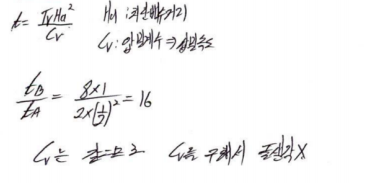 t = TvHd² / Cv Hd : 최대배수거리
Cv : 압밀계수 ⇒ 압밀속도
tB / tA = 8×1 / 2×(1/2)² = 16
Cv는 Cv를 구해서 풀생각X